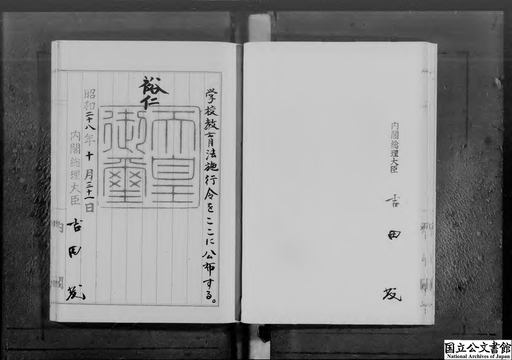 内閣総理大臣
吉田茂
学校教育法施行令をここに公布する。
裕仁
天皇御璽
昭和二十八年十月三十一日
内閣総理大臣
吉田茂
国立公文書館
National Archives of Japan